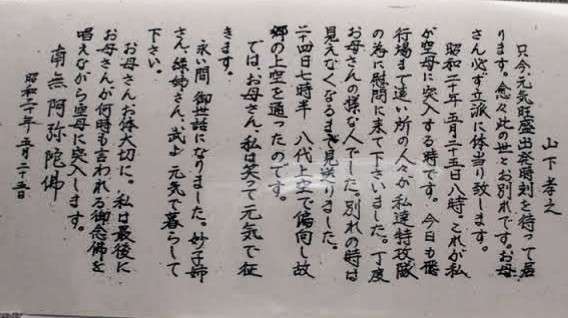 山下孝之
只今元気旺盛出発時刻を待って居
ります。愈々此の世とお別れです。お母
さん必ず立派に体当り致します。
昭和二十年五月二十五日八時。これが私
が空母に突入する時です。今日も飛
行場まで遠い所の人々が私達特攻隊
の為に慰問に来て下さいました。丁度
お母さんの様な人でした。別れの時は
見えなくなるまで見送りました。
二十四日七時半 八代上空で偏向し故
郷の上空を通ったのです。
では、お母さん、私は笑って元気で征
きます。
永い間 御世話になりました。妙子姉
さん、緑姉さん、武よ 元気で暮らして
下さい。
お母さんお体大切に。私は最後に
お母さんが何時も言われる御念佛を
唱えながら空母に突入します。
南無阿弥陀佛
昭和二〇年 五月二十五日